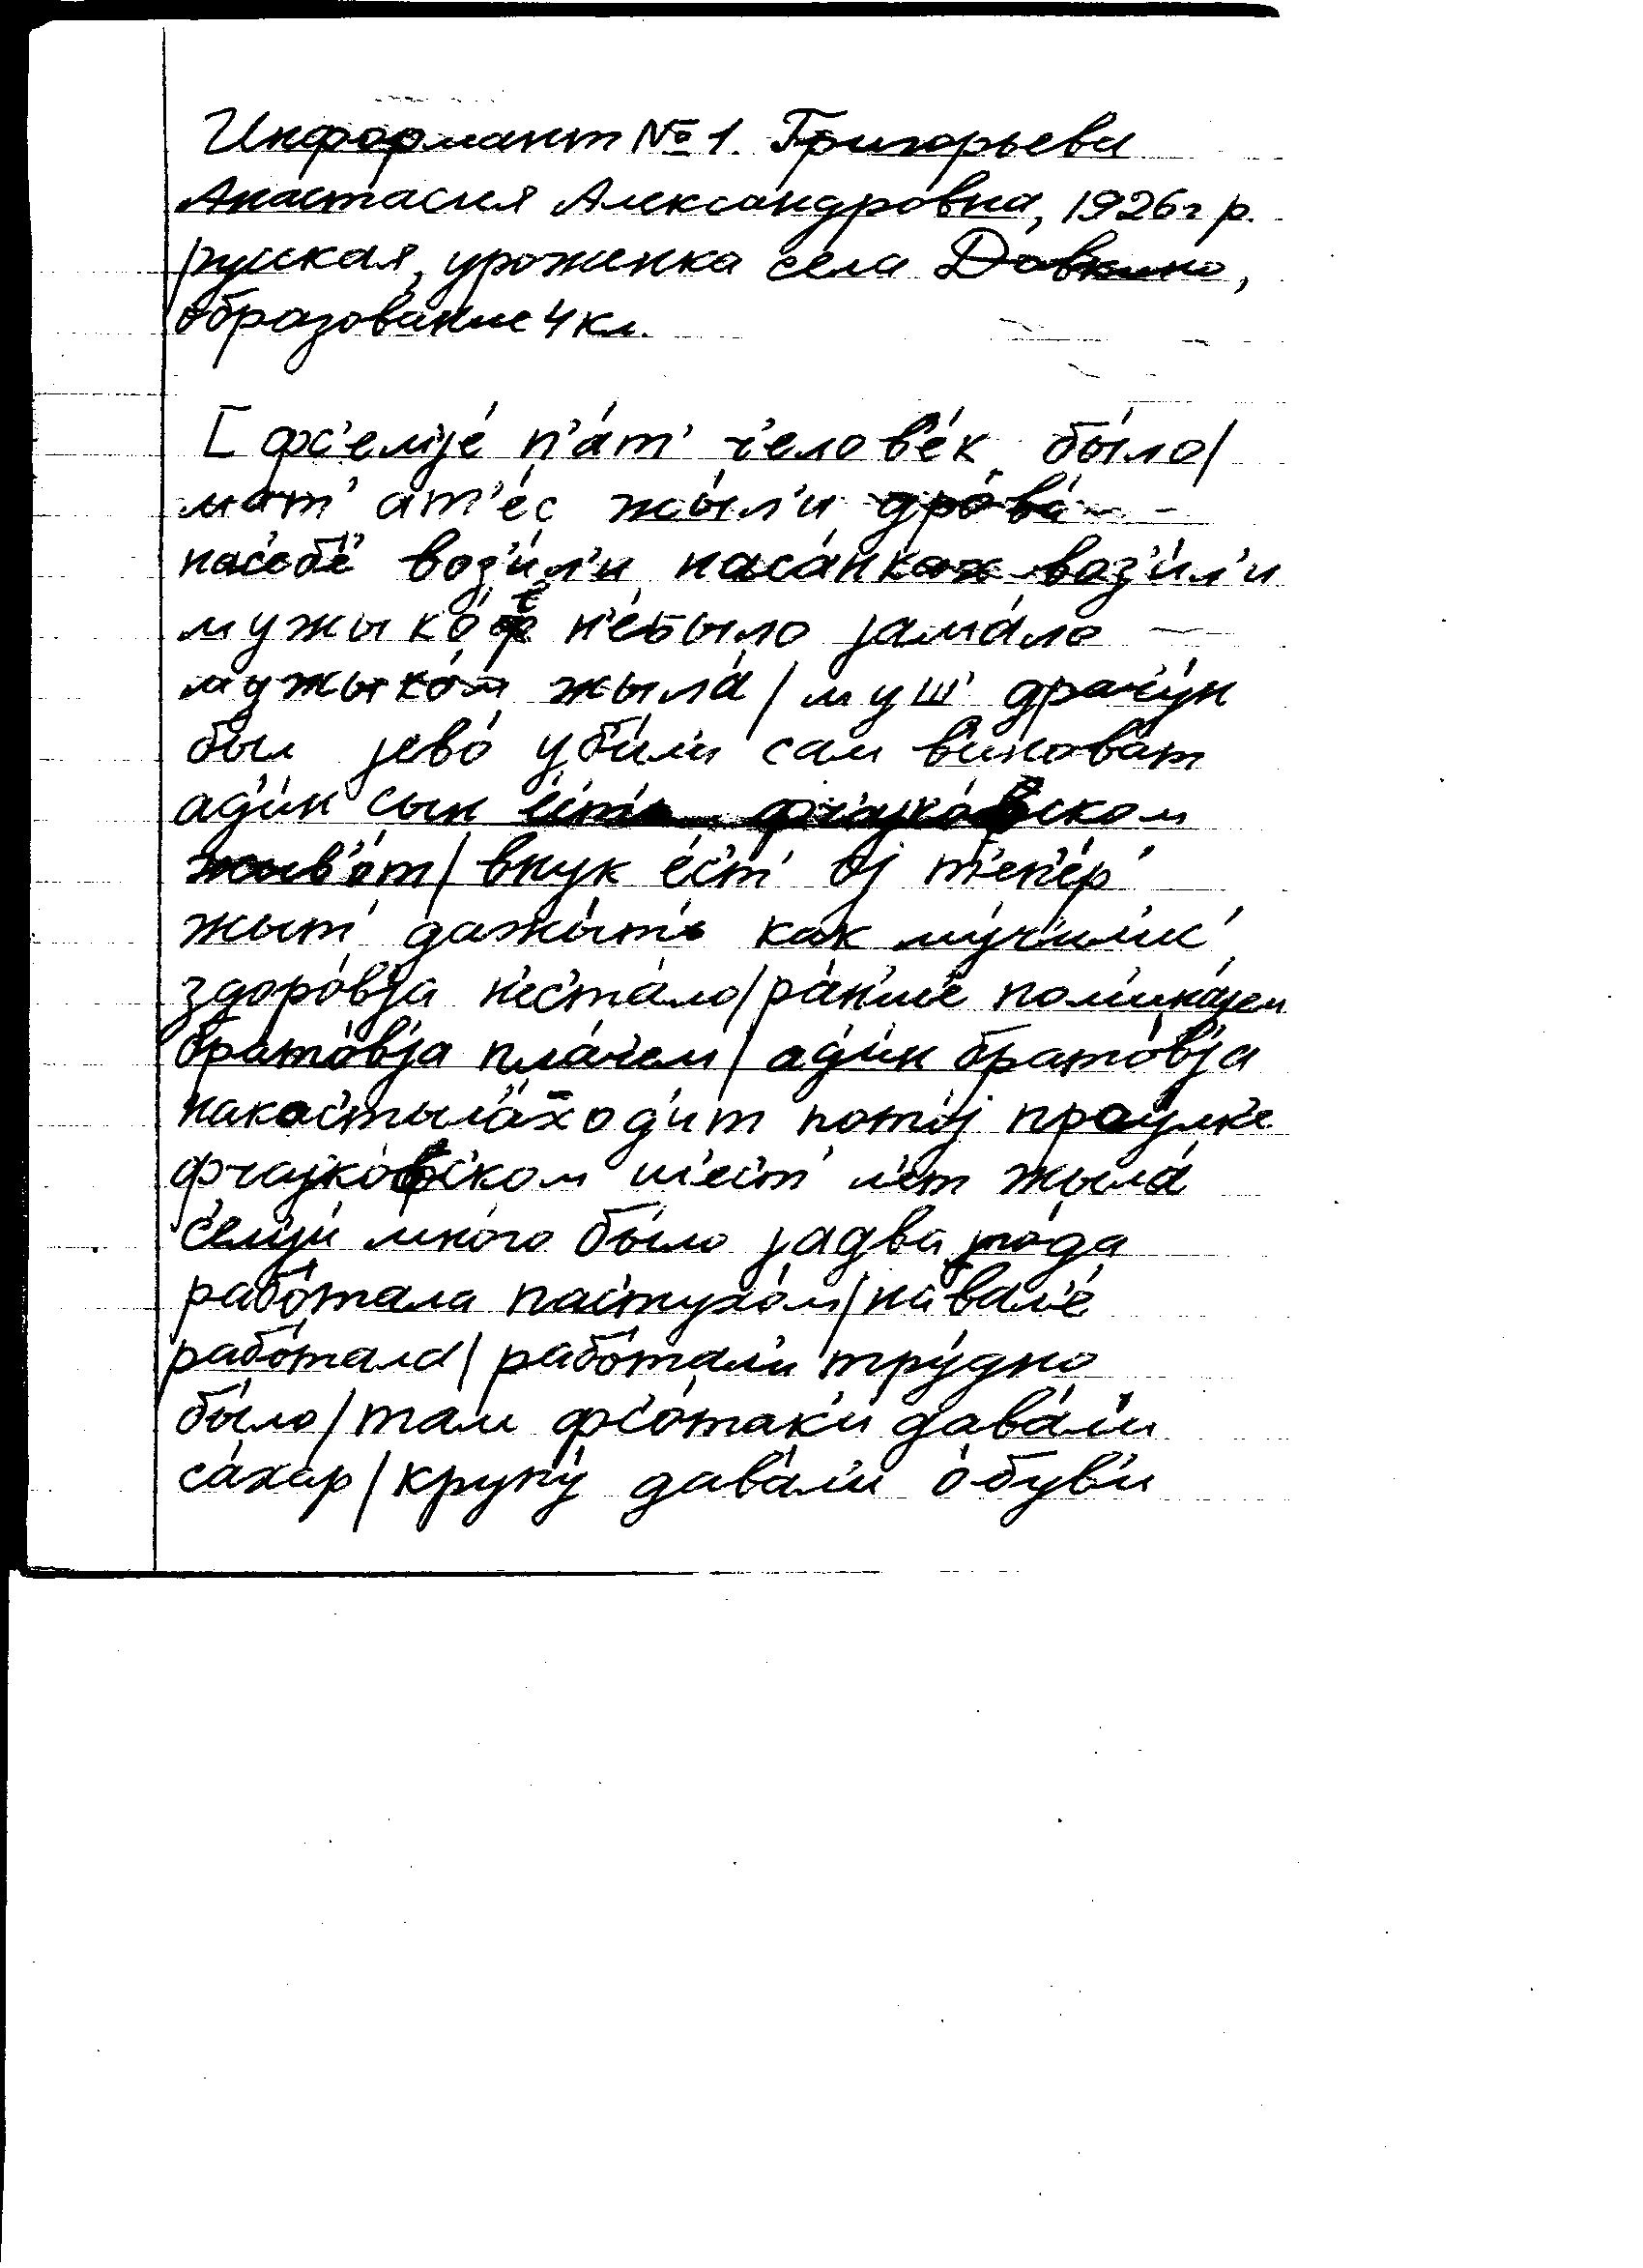 Информант №1. Григорьева
Анастасия Александровна, 1926г р.
русская, уроженка села Довкино,
образование 4 кл.
[фс'емjе́ п'а́т' ч'елов'е́к бы́ло/
мат' ат'е́ц жы́л'и дрова́
нас'еб'е́ воз'и́л'и наса́нках воз'и́л'и
мужыко́ф н'е́было jама́ло
мужыко́м жыла́/ муш драч'у́н
был jево́ уб'и́л'и сам в'инова́т
ад'и́н сын е́ст' фчаjко́фском
жыв'о́т/ внук е́ст' ој т'еп'е́р'
жыт' дажы́т' как му́ч'ил'ис'
здоро́вjа н'еста́ло/ра́н'ше пом'ина́jем
брато́вjа пла́ч'ем/ ад'и́н брато́вjа
накостыл'а́х ход'ит потој проу́лк'е
фчаjко́фском шест' л'ет жыла́
с'емjи́ мно́го бы́ло jадва го́да
рабо́тала пастухо́м/навал'е́
рабо́тала/ рабо́тал'и тру́дно
бы́ло/там фс'отак'и дава́л'и
са́хар/крупу́ дава́л'и о́був'и